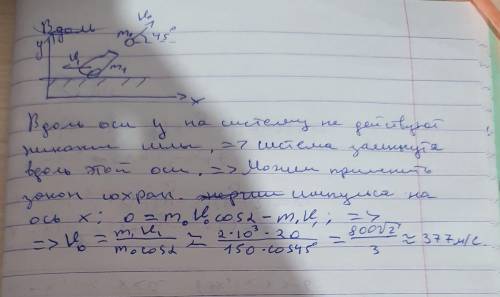 Вдоль
V₀
m₀ 45°
y
V₁
m₁
x
Вдоль оси y на систему не действуют
никакие силы, => система замкнута
вдоль этой оси. => Можем применить
закон сохран. импульса на
ось x: 0 = m₀V₀cosα - m₁V₁; =>
=> V₀ = m₁V₁/m₀cosα = 2·10³·20/150·cos45° = 800√2/3 ≈ 377 м/с.